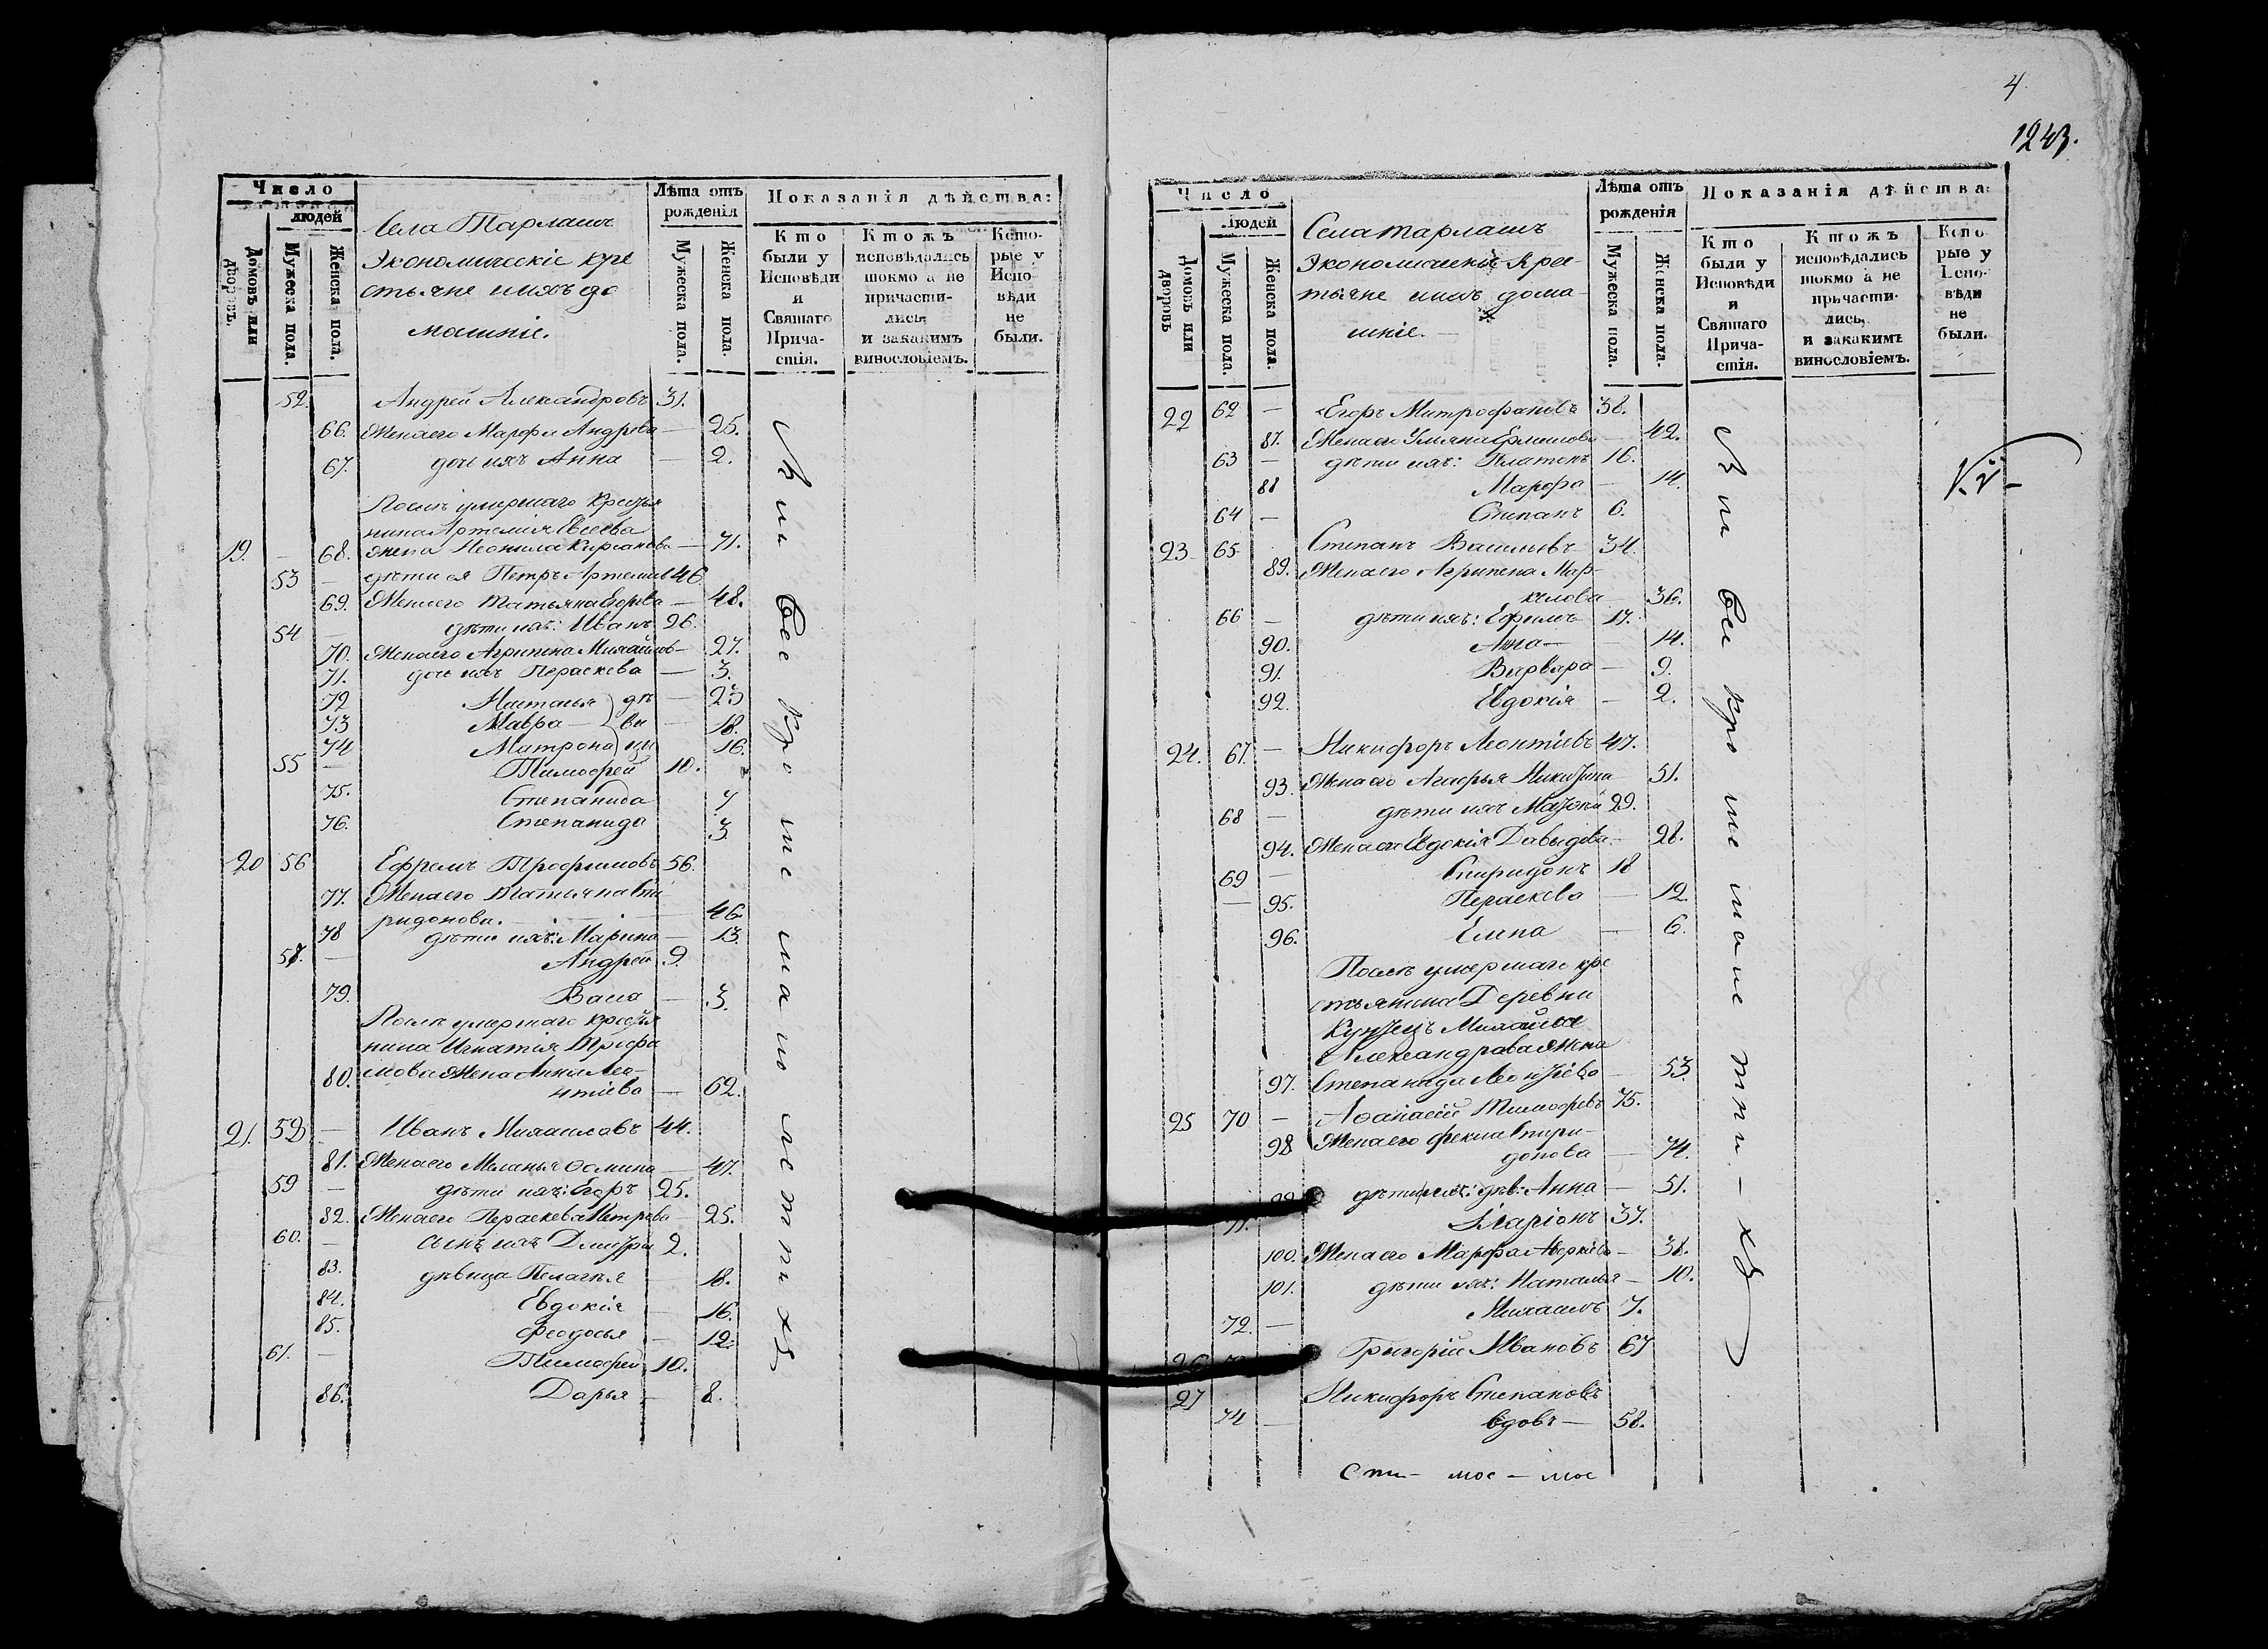 Число
людей
Домовъ или дворовъ.
Мужеска пола.
Женска пола.
Села Тарлаши
Экономическіе кре
стьяне и ихъ до
машніе.
Лѣта отъ рожденія
Мужеска пола.
Женска пола.
Показанія дѣйства:
Кто были у Исповѣди и Святаго Причастія.
Ктожъ исповѣдались токмо а не причастились и закакимъ винословіемъ.
Которые у Исповѣди не были.
52. Андрей Александровъ 31.
66. Жена его Марфа Андрѣева — 25.
67. дочь ихъ Анна — 2.
Послѣ умершаго крестья
нина Артемія Евсеева
19. — 68. жена Неонила Кирсанова — 71.
53 — дѣти ея Петръ Артемьевъ 46
69. Жена его Татьяна Егорова — 48.
54 — дѣти ихъ: Иванъ 26.
70. Жена его Агрипена Михайлов — 27.
71. дочь ихъ Пераскева — 3.
72 Наталья дѣ — 23
73 Мавра — ви — 18.
74 Матрона цы 16.
55 — Тимофей 10.
75. Степанида 7
76. Степанида 3
20 56 Ефремъ Трофимовъ 56.
77. Жена его Татьяна Спи
ридонова. — 46.
78 дѣти ихъ: Марина — 13.
57. — Андрей 9.
79. Васса — 3.
Послѣ умершаго крестья
нина Игнатія Трофи
80. мова Жена Анна Лео-
нтіева — 62.
21. 58 — Иванъ Михаиловъ 44.
81. Жена его Меланья Фомина — 47.
59 — дѣти ихъ: Егоръ 25.
82. Жена его Пераскева Петрова — 25.
60. — сынъ ихъ Дмитрій 2.
83. дѣвица Пелагея — 18.
84. Евдокія — 16.
85. Феодосья — 12.
61. — Тимофей 10.
86. Дарья — 8.
Сіи все кроме малолетныхъ
4
1243.
Число
Людей
Домовъ или дворовъ
Мужеска пола.
Женска пола.
Села тарлашъ
Экономическіе Крес-
тьяне и ихъ дома-
шніе. —
Лѣта отъ рожденія
Мужеска пола.
Женска пола.
Показанія дѣйства:
Кто были у Исповѣди и Святаго Причастія.
Ктожъ исповѣдались токмо а не причастились, и закакимъ винословіемъ.
Которые у Исповѣди не были.
22 62 — Егоръ Митрофановъ 38.
87. Жена его Ульяна Ермилова — 42.
63 — дѣти ихъ: Платонъ 16.
88 Марфа — 14.
64 — Степанъ 6.
23 65 Степанъ Васильевъ 34.
89. Жена его Агрипена Мар-
келова — 36.
66 — дѣти ихъ: Ефимъ 17.
90. Анна — 14.
91. Варвара — 9.
92. Евдокія — 2.
24. 67. — Никифоръ Леонтіевъ 47.
93. Жена его Агафья Никитина — 51.
68 — дѣти ихъ Матвей 29.
94. Жена его Евдокія Давыдова — 28.
69 — Спиридонъ 18
— 95. Пераскева — 12.
96. Елена — 6.
Послѣ умершаго кре
стьянина Деревни
Михайла
Александрова жена
97. Степанида Леонтіева — 53.
25 70 — Афанасій Тимофевъ 75.
98 Жена его Фекла Спири-
донова — 74.
99 дѣти ихъ: дѣв: Анна — 51.
71. Иларіонъ 37.
100. Жена его Марфа Аверкіева — 38.
101. дѣти ихъ: Наталья — 10.
72. — Михаилъ 7.
26 73 Григорій Ивановъ 67
27 Никифоръ Степановъ
74 — вдовъ — 58.
Сіи все кроме малолетни-хъ